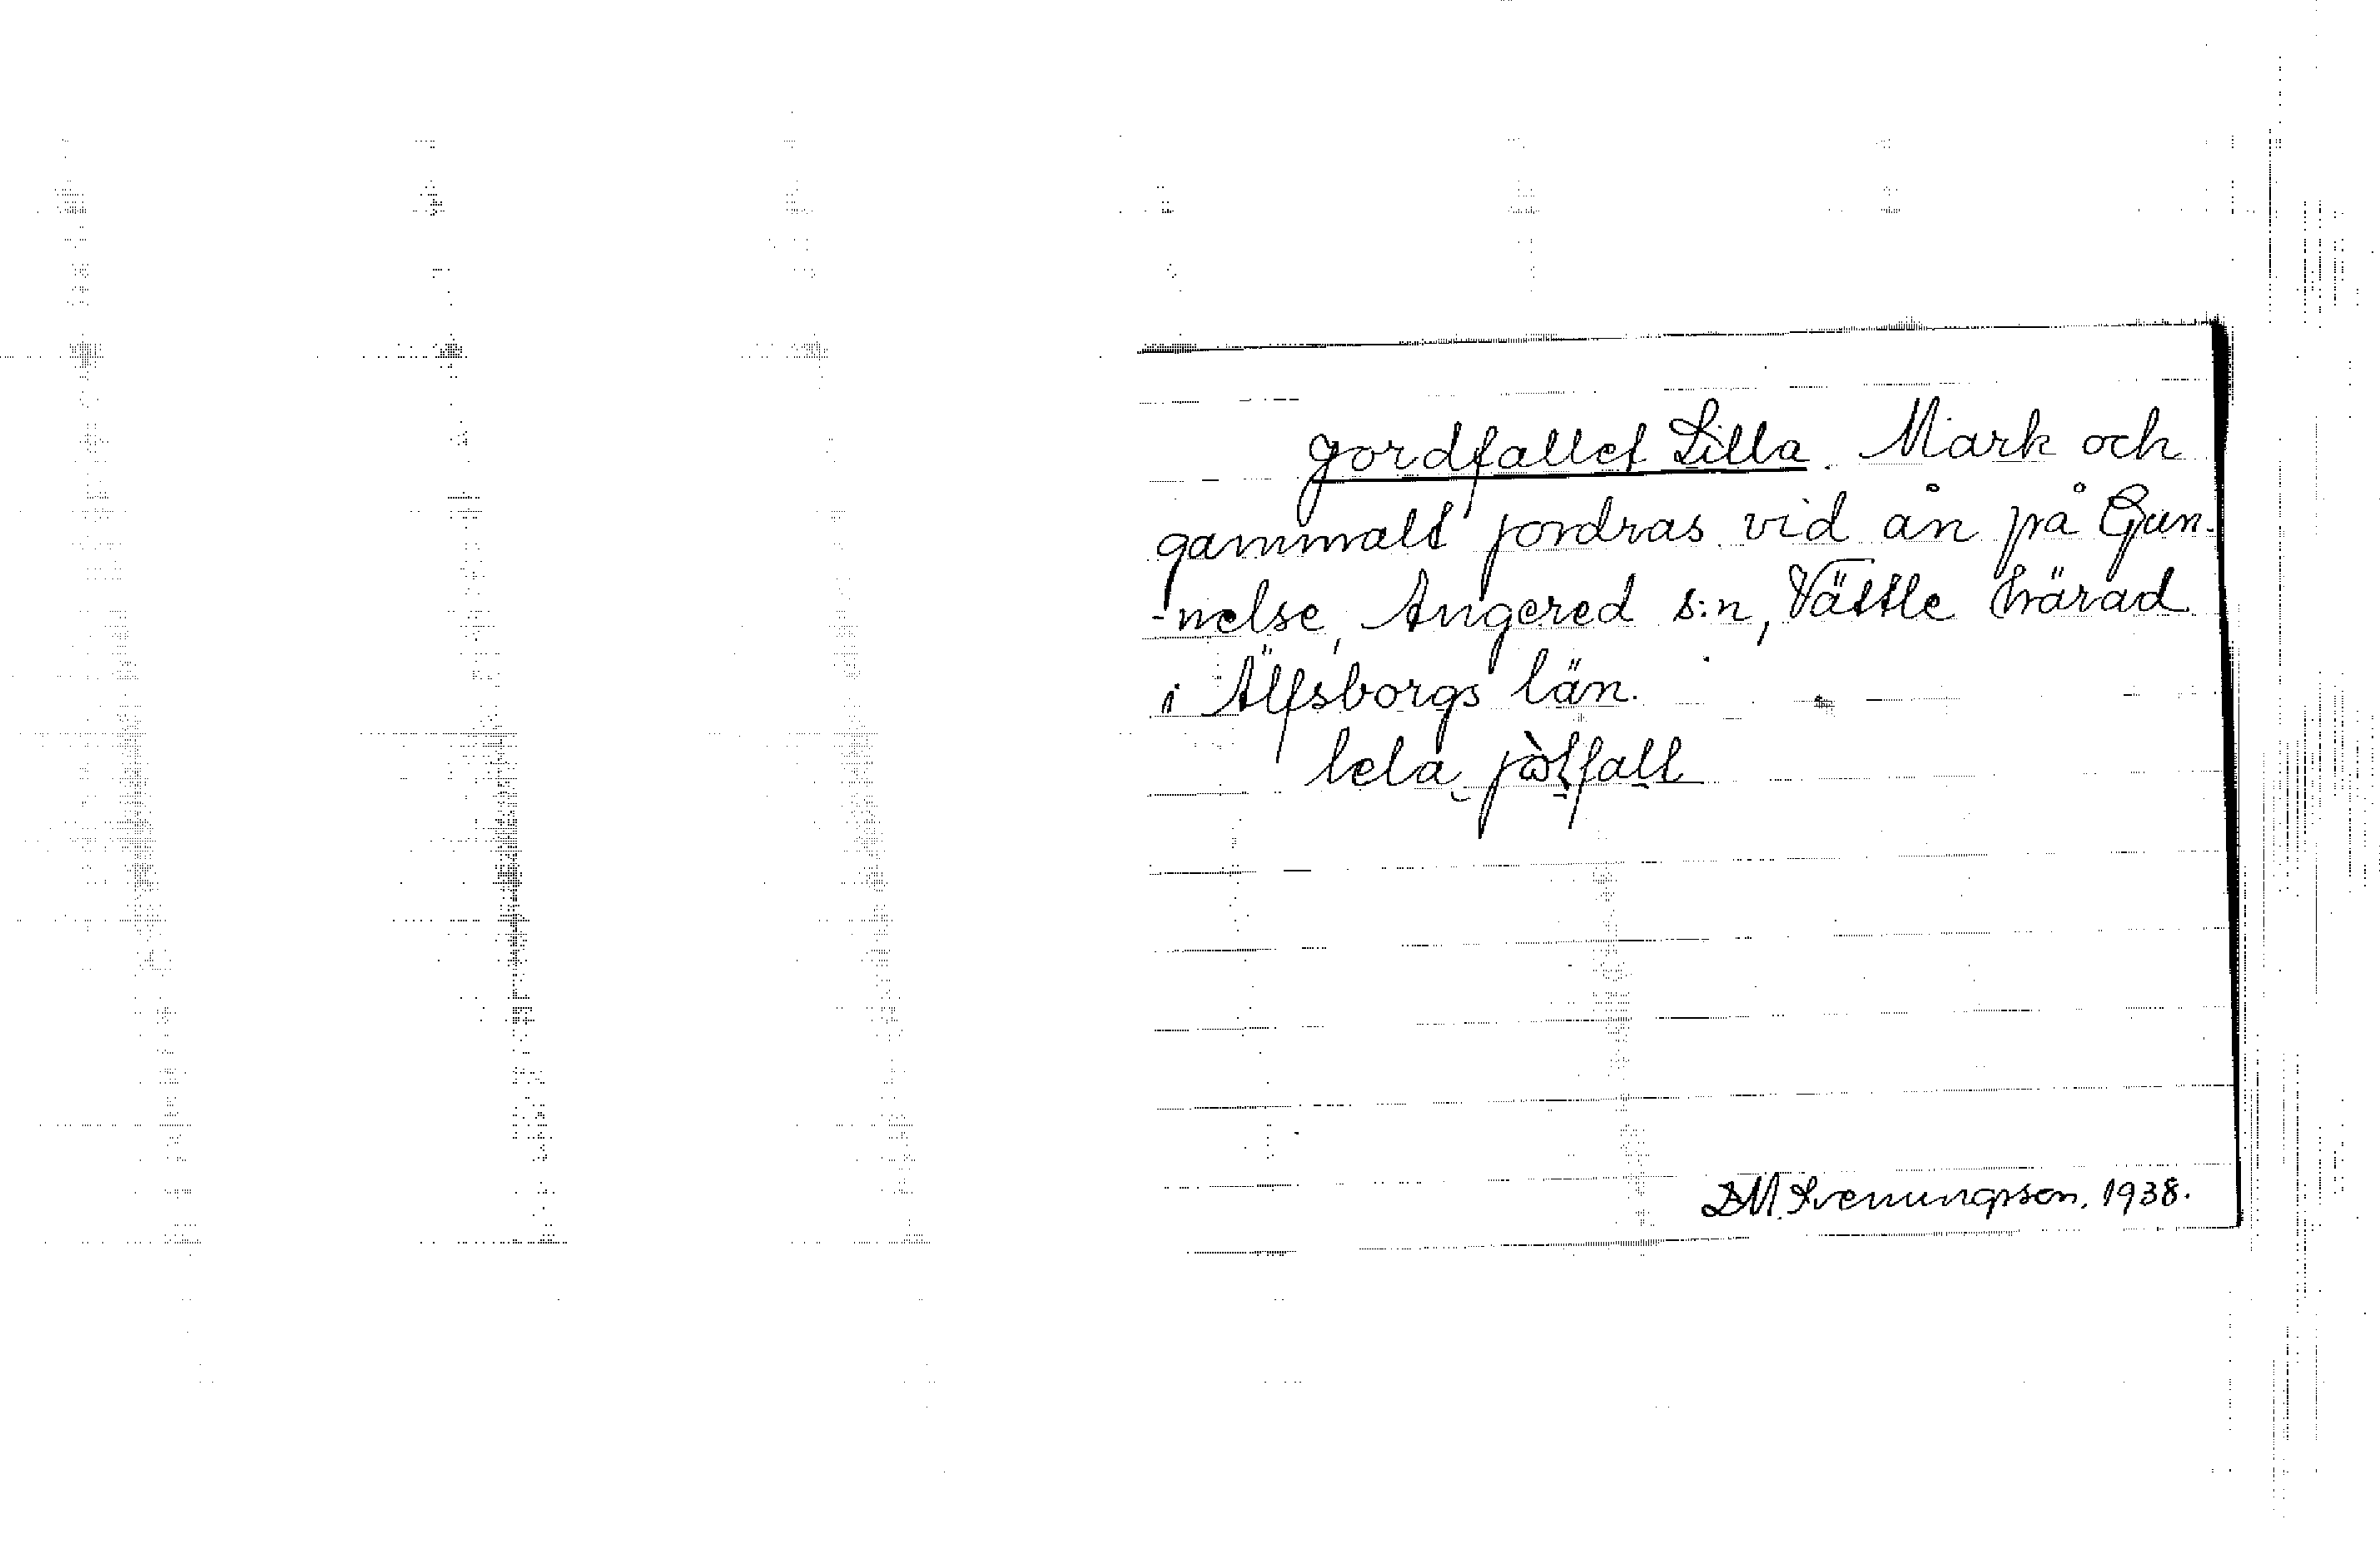 Jordfallet Lilla. Mark och
gammalt jordras vid ån på Gun-
-nelse, Angered s:n, Vättle härad
i Älfsborgs län.
lela jòtfall
D M. Svenungsson. 1938.